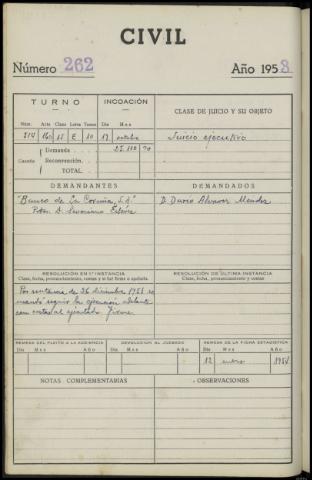 CIVIL
Número 262 Año 1953
TURNO INCOACIÓN CLASE DE JUICIO Y SU OBJETO
Núm. Acta Clase Letra Tomo Día Mes
E 10 17 octubre Juicio ejecutivo
Cuantía Demanda
Reconvención.
TOTAL.
DEMANDANTES DEMANDADOS
"Banco de La Coruña, S.A." D. Dario Alvarez Mendez
RESOLUCIÓN EN 1ª INSTANCIA RESOLUCIÓN DE ÚLTIMA INSTANCIA
Clase, fecha, pronunciamiento, costas y si fué firme o apelada. Clase, fecha, pronunciamiento y costas
Por sentencia de 26 diciembre 1953 se
mandó seguir la ejecución adelante
con costas al ejecutado. Firme
REMESA DEL PLEITO A LA AUDIENCIA DEVOLUCIÓN AL JUZGADO REMESA DE LA FICHA ESTADÍSTICA
Día Mes Año Día Mes Año Día Mes Año
12 enero 1954
NOTAS COMPLEMENTARIAS OBSERVACIONES